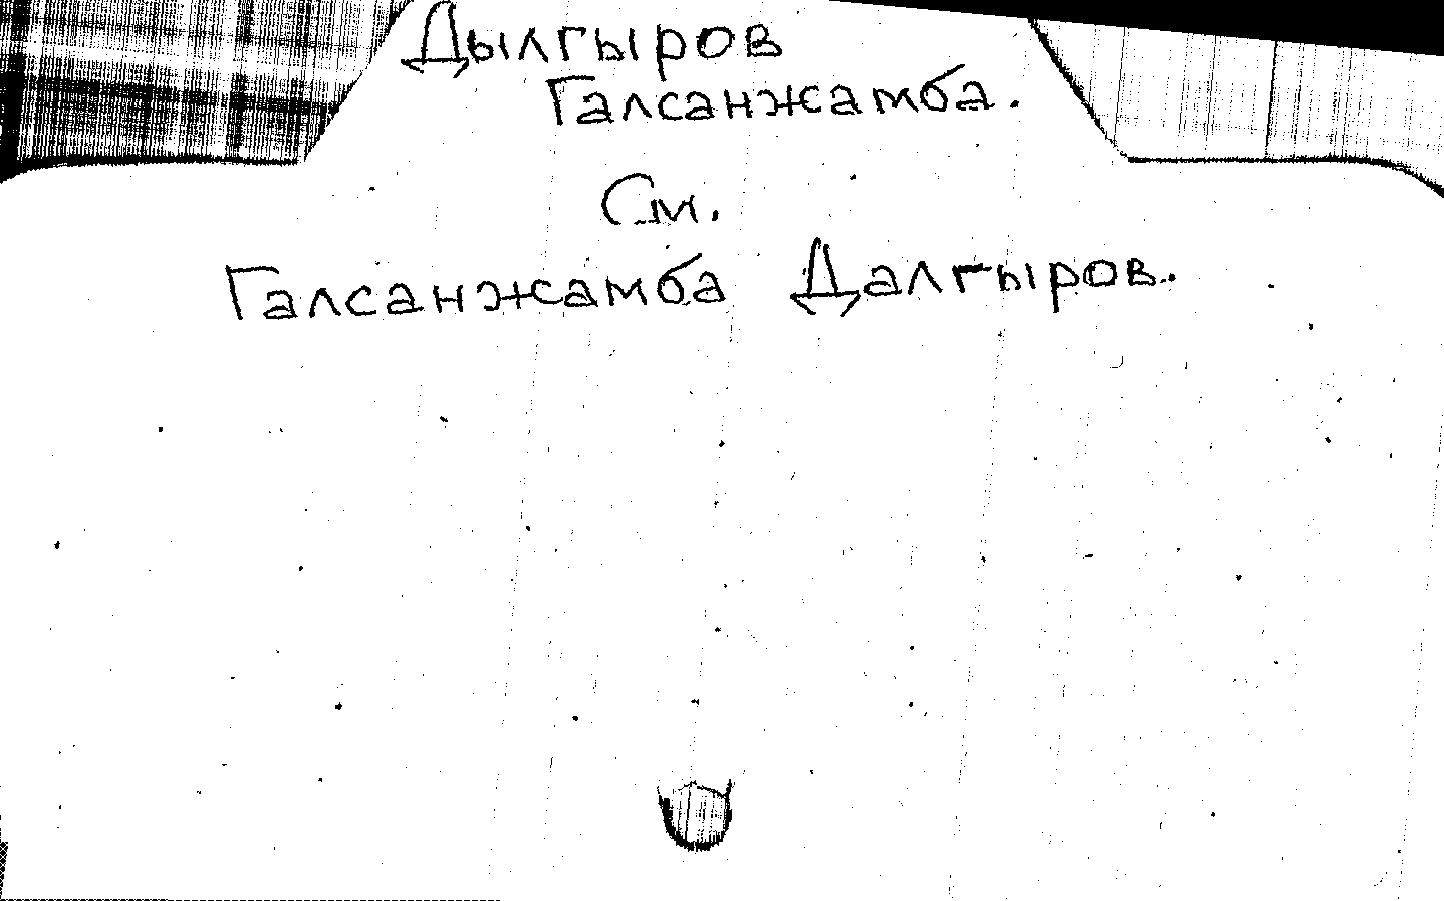 Дылгыров
Галсанжамба.
См.
Галсанжамба Далгыров.